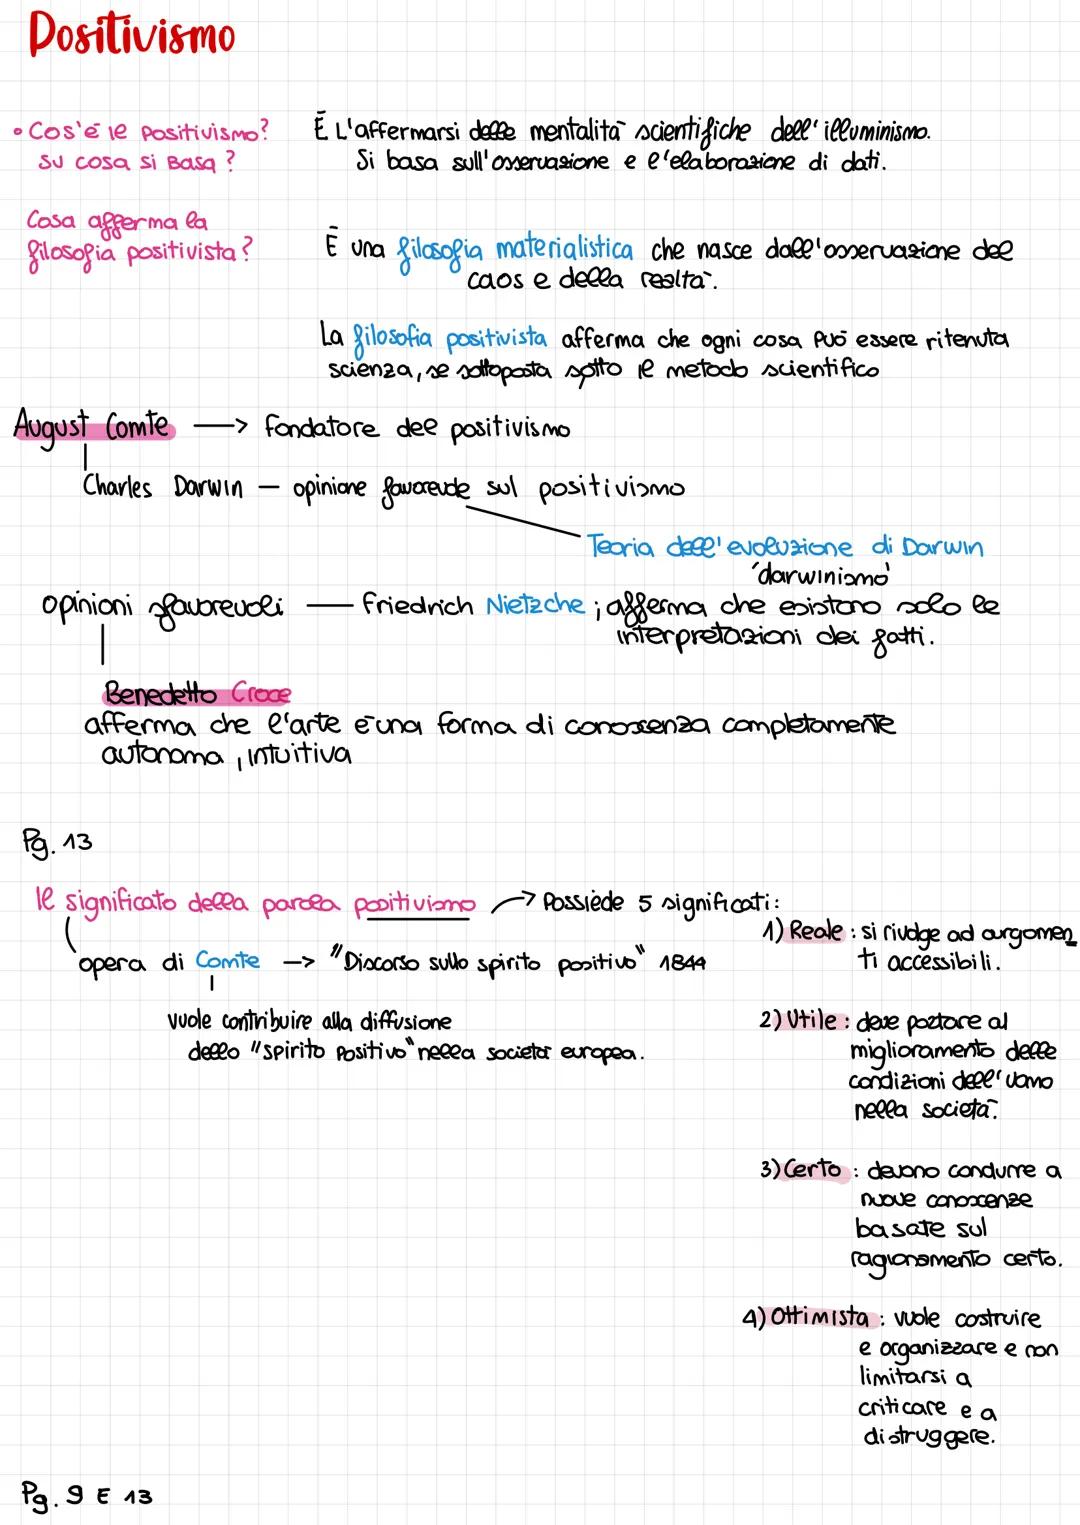 Positivismo
• Cos'è il Positivismo?
su cosa si Basa?
È L'affermarsi delle mentalità scientifiche dell'illuminismo.
Si basa sull'osservazione e l'elaborazione di dati.
Cosa afferma la
filosofia positivista?
È una filosofia materialistica che nasce dall'osservazione del
caos e della realtà.
La filosofia positivista afferma che ogni cosa Può essere ritenuta
scienza, se sottoposta sotto il metodo scientifico
August Comte → fondatore del positivismo
Charles Darwin — opinione favorevole sul positivismo
Teoria dell'evoluzione di Darwin
'darwinismo'
opinioni sfavorevoli — Friedrich Nietzche; afferma che esistono solo le
interpretazioni dei fatti.
Benedetto Croce
afferma che l'arte è una forma di conoscenza completamente
autonoma, intuitiva
Pg. 13
Il significato della parola positivismo → Possiede 5 significati:
1) Reale: si rivolge ad argomen
ti accessibili.
opera di Comte → "Discorso sullo spirito positivo" 1844
vuole contribuire alla diffusione
dello "spirito Positivo" nella società europea.
2) Utile: deve portare al
miglioramento delle
condizioni dell'uomo
nella società.
3) Certo: devono condurre a
nuove conoscenze
basate sul
ragionamento certo.
4) Ottimista: vuole costruire
e organizzare e non
limitarsi a
criticare e a
distruggere.
Pg. 9 E 13